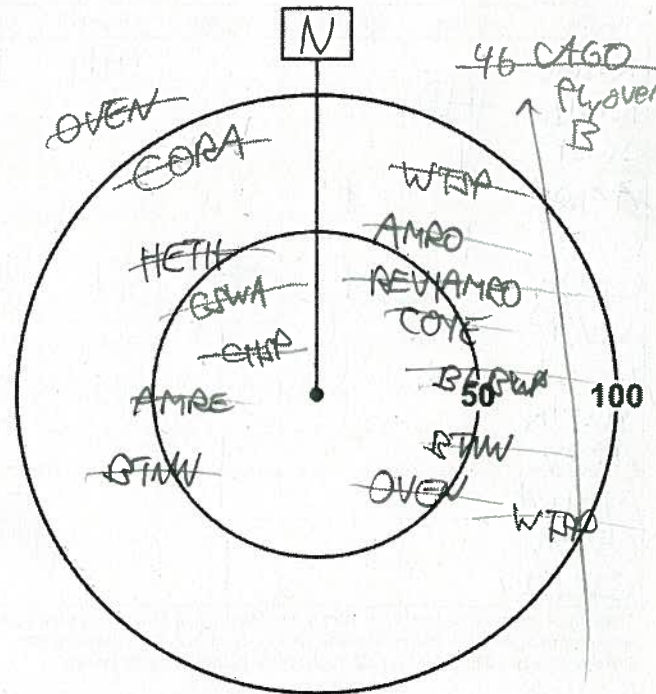 N
46 CAGO
flyover
B
OVEN
CORA
WTSP
AMRO
HETH
REVI AMRO
CSWA
COYE
CHSP
50
100
AMRE
BTNW
BTNW
OVEN
WTSP